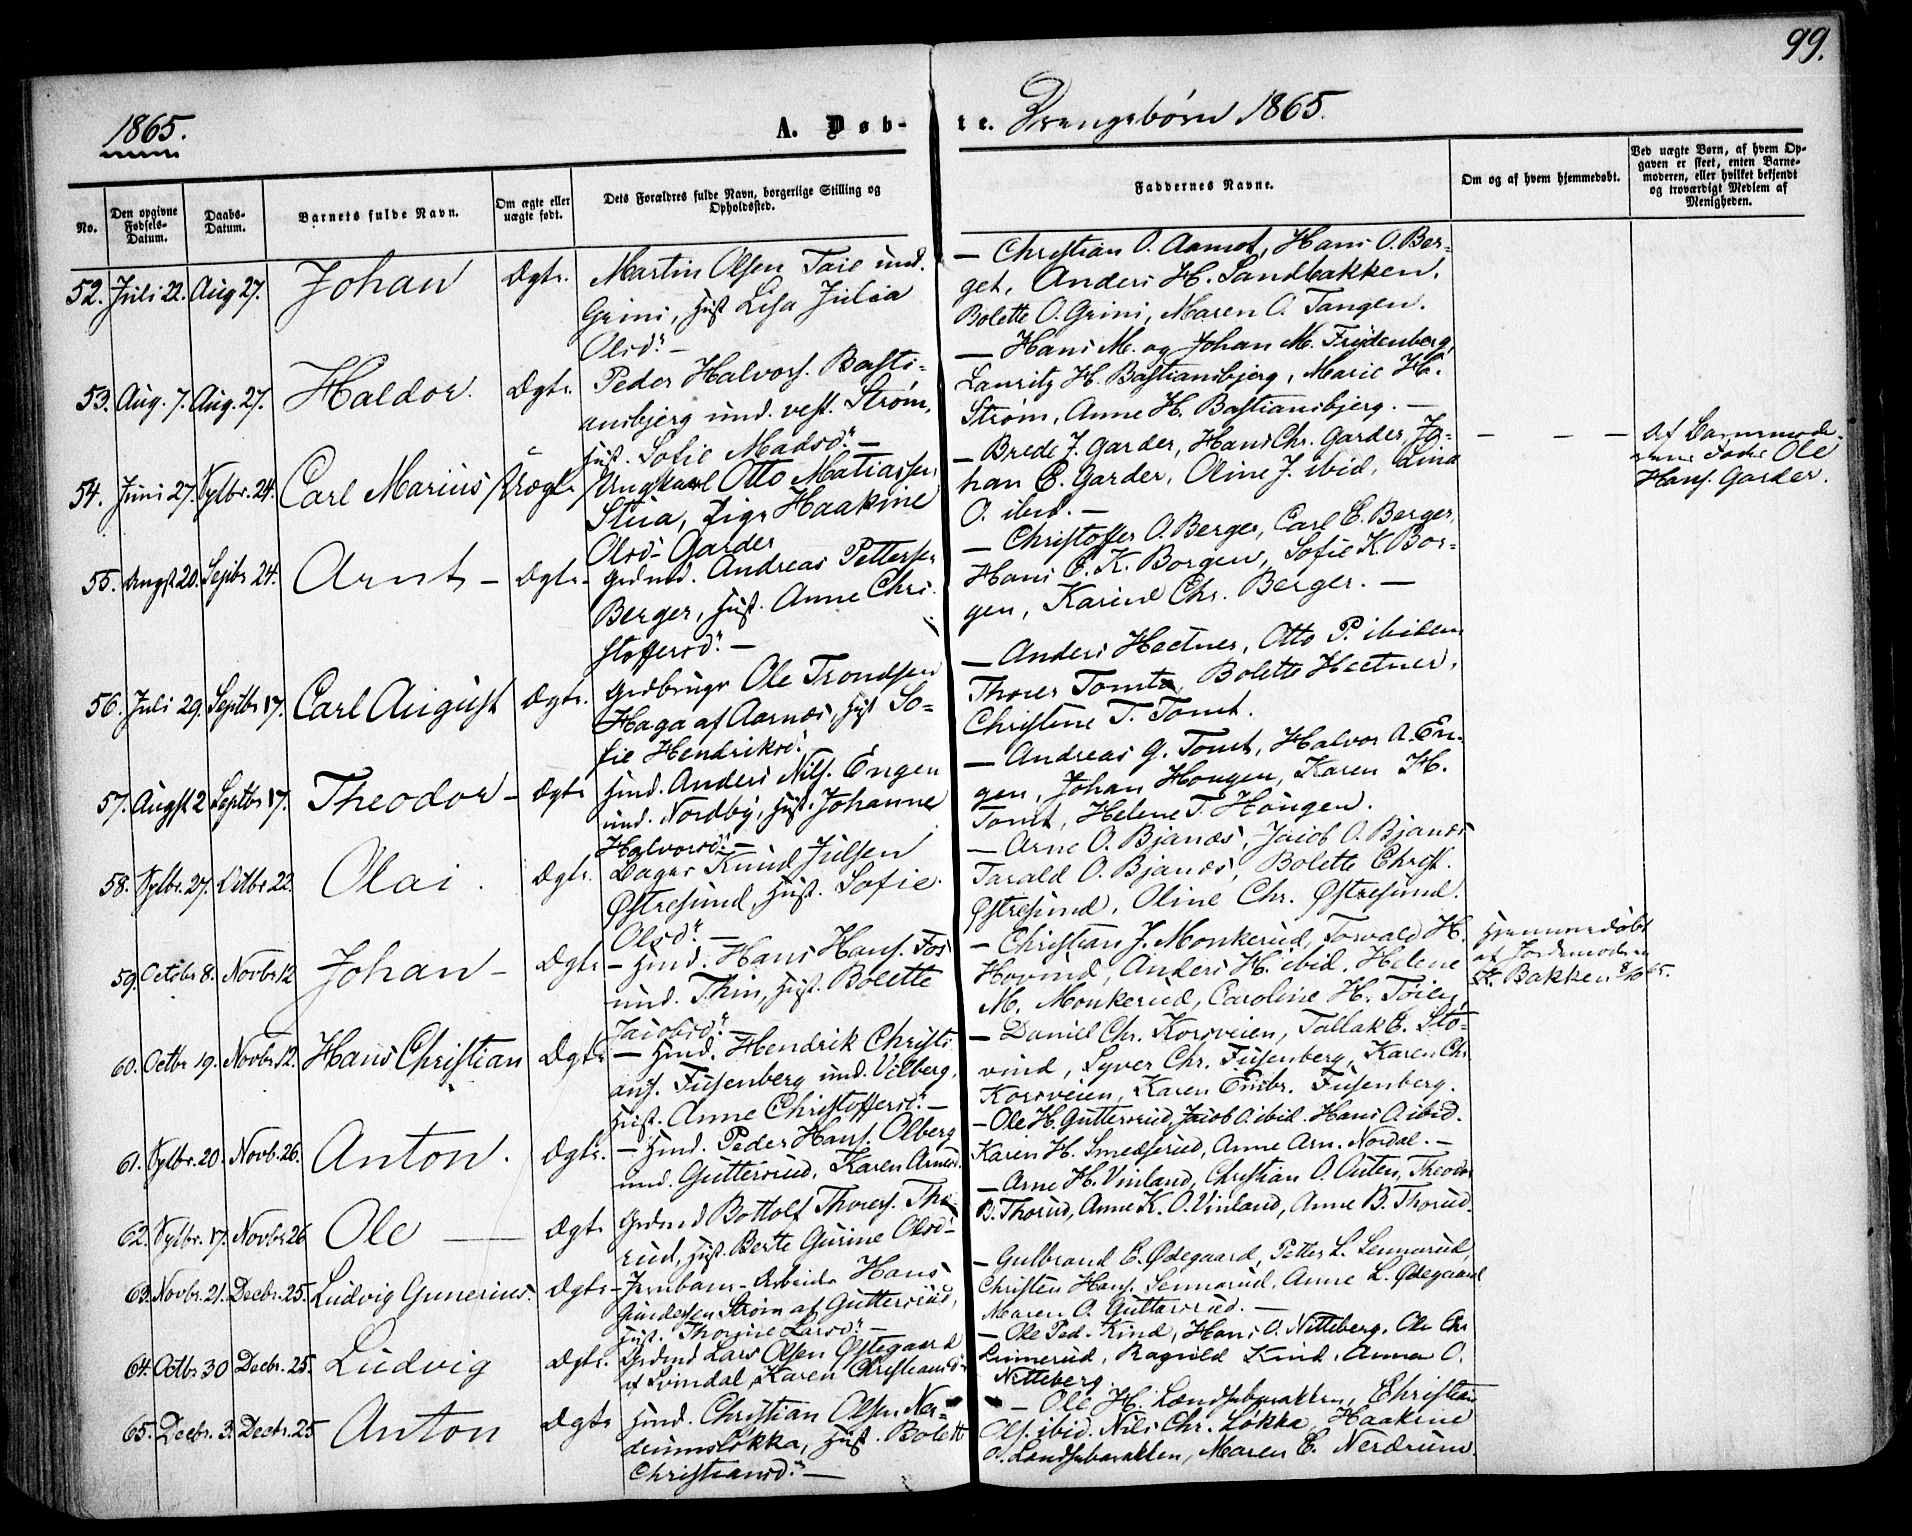 99.
1865.
A. Døb-
te. Drengebørn 1865.
No.
Den opgivne Fødsels-Datum.
Daabs-Datum.
Barnets fulde Navn.
Om ægte eller uægte født.
Dets Forældres fulde Navn, borgerlige Stilling og Opholdssted.
Faddernes Navne.
Om og af hvem hjemmedøbt.
Ved uægte Børn, af hvem Opgaven er skeet, enten Barnemoderen, eller hvilket bekjendt og troværdigt Medlem af Menigheden.
52. Juli 22. Aug 27. Johan Ægte.
Martin Olsen Taie und.
Grini, Hust Lisa Julia
Olsd. —
— Christian O. Aamot, Hans O. Ber-
get, Anders H. Sandbakken.
Bolette O. Grini, Maren O. Tangen.
53. Aug. 7. Aug. 27. Haldor. Ægte.
Peder Halvors. Basti-
ansbjerg und. vest. Strøm,
Hust. Sofie Madsd. —
— Hans M. og Johan M. Frydenberg,
Lauritz H. Bastiansbjerg, Marie H.
Strøm, Anne H. Bastiansbjerg. —
54. Juni 27. Sptbr. 24. Carl Marius Uægte
Ungkarl Otto Matiassen
Stua, Pige Haakine
Olsd. Garder
— Brede J. Garder, Hans Chr. Garder, Jo-
han E. Garder, Oline J. ibid, Lina
O. ibid. —
— — —
Af Barnemode-
rens Fader Ole
Hans. Garder.
55. Augst 20. Septbr 24. Arnt — Ægte.
Grdmd. Andreas Pettersen
Berger, Hust. Anne Chri-
stoffersd. —
— Christoffer O. Berger, Carl E. Berger,
Hans E. K. Borgen, Sofie K. Bor-
gen, Karine Chr. Berger. —
56. Juli 29. Septbr 17. Carl August Ægte.
Grdbrugr Ole Trondsen
Haga af Aarnæs, Hust So-
fie Hendriksd.
— Anders Hectner, Otto P. ibidem
Thorer Tomta, Bolette Hectner,
Christene T. Tomt.
57. Augst 2 Septbr 17. Theodor — Ægte
Hmd. Anders Nils. Engen
und. Nordby, Hust. Johanne
Halvorsd. —
— Andreas G. Tomt, Halvor A. En-
gen, Johan Hougen, Karen H.
Tomt, Helene T. Hougen.
58. Sptbr. 27. Octbr 22. Olai. Ægte.
Bager Knud Julsen
Østresund, Hust. Sofie
Olsd. —
— Arne O. Bjanæs, Jacob O. Bjanæs
Tarald O. Bjanæs, Bolette Christ.
Østresund, Oline Chr. Østresund.
59. Octbr 8. Novbr 12 Johan — Ægte
— Hmd. Hans Hans. Fos
und. Thin, Hust. Bolette
Jacobsd. —
— Christian J. Monkerud, Torvald H.
Hovind, Anders H. ibid, Helene
M. Monkerud, Caroline H. Tøien.
Hjemmedøbt
af Jordemoderen
K. Bakken 8/10 65.
60. Octbr 19. Novbr 12. Hans Christian Ægte
— Hmd. Hendrik Christi-
ans. Fusenberg und. Vilberg,
Hust. Anne Christoffersd. —
— Daniel Chr. Korsveien, Tallak E. Sto-
vind, Syver Chr. Fusenberg, Karen Chr.
Korsveien, Karen Embr. Fusenberg.
61. Sptbr. 20. Novb. 26. Anton. Ægte.
— Hmd. Peder Hans. Olberg
und. Guttersrud, Karen Arnesd.
— Ole H. Guttersrud, Jacob A. ibid. Hans O. ibid.
Karen H. Smedsrud, Anne Arn. Nordal. —
62. Sptbr. 17. Novbr 26 Ole — Ægte
Grdmd Bottolf Thores. Tho-
rud, Hust. Berte Gurine Olsd. —
— Arne H. Vinland, Christian O. Outen, Theodor
B. Thorud, Anne K. O. Vinland, Anne B. Thorud.
63. Novbr. 21. Decbr. 25. Ludvig Gunerius. Ægte
— Jernbane-Arbeider Hans
Gundersen Strøm af Guttersrud,
Hust. Thorine Larsd. —
— Gulbrand E. Ødegaard, Petter L. Sennerud,
Christen Hans. Sennerud, Anne L. Ødegaard
Maren O. Guttersrud. —
64. Octbr. 30 Decbr. 25. Ludvig Ægte.
Grdmd Lars Olsen Østegaard
af Svindal, Karen Christiansd.
— Ole Ped. Kind, Hans O. Nitteberg, Ole Chr
Linnerud, Ragnild Kind, Anne O.
Nitteberg.
65. Decbr. 3. Decbr. 25 Anton Ægte
Hmd. Christian Olsen Ner-
drumsløkka, Hust. Bolette
Christiansd. —
— Ole H. Lændsebarakken, Christian
Ols. ibid. Nils Chr. Løkka, Haakine
O. Landsebarakken, Maren E. Nerdrum.